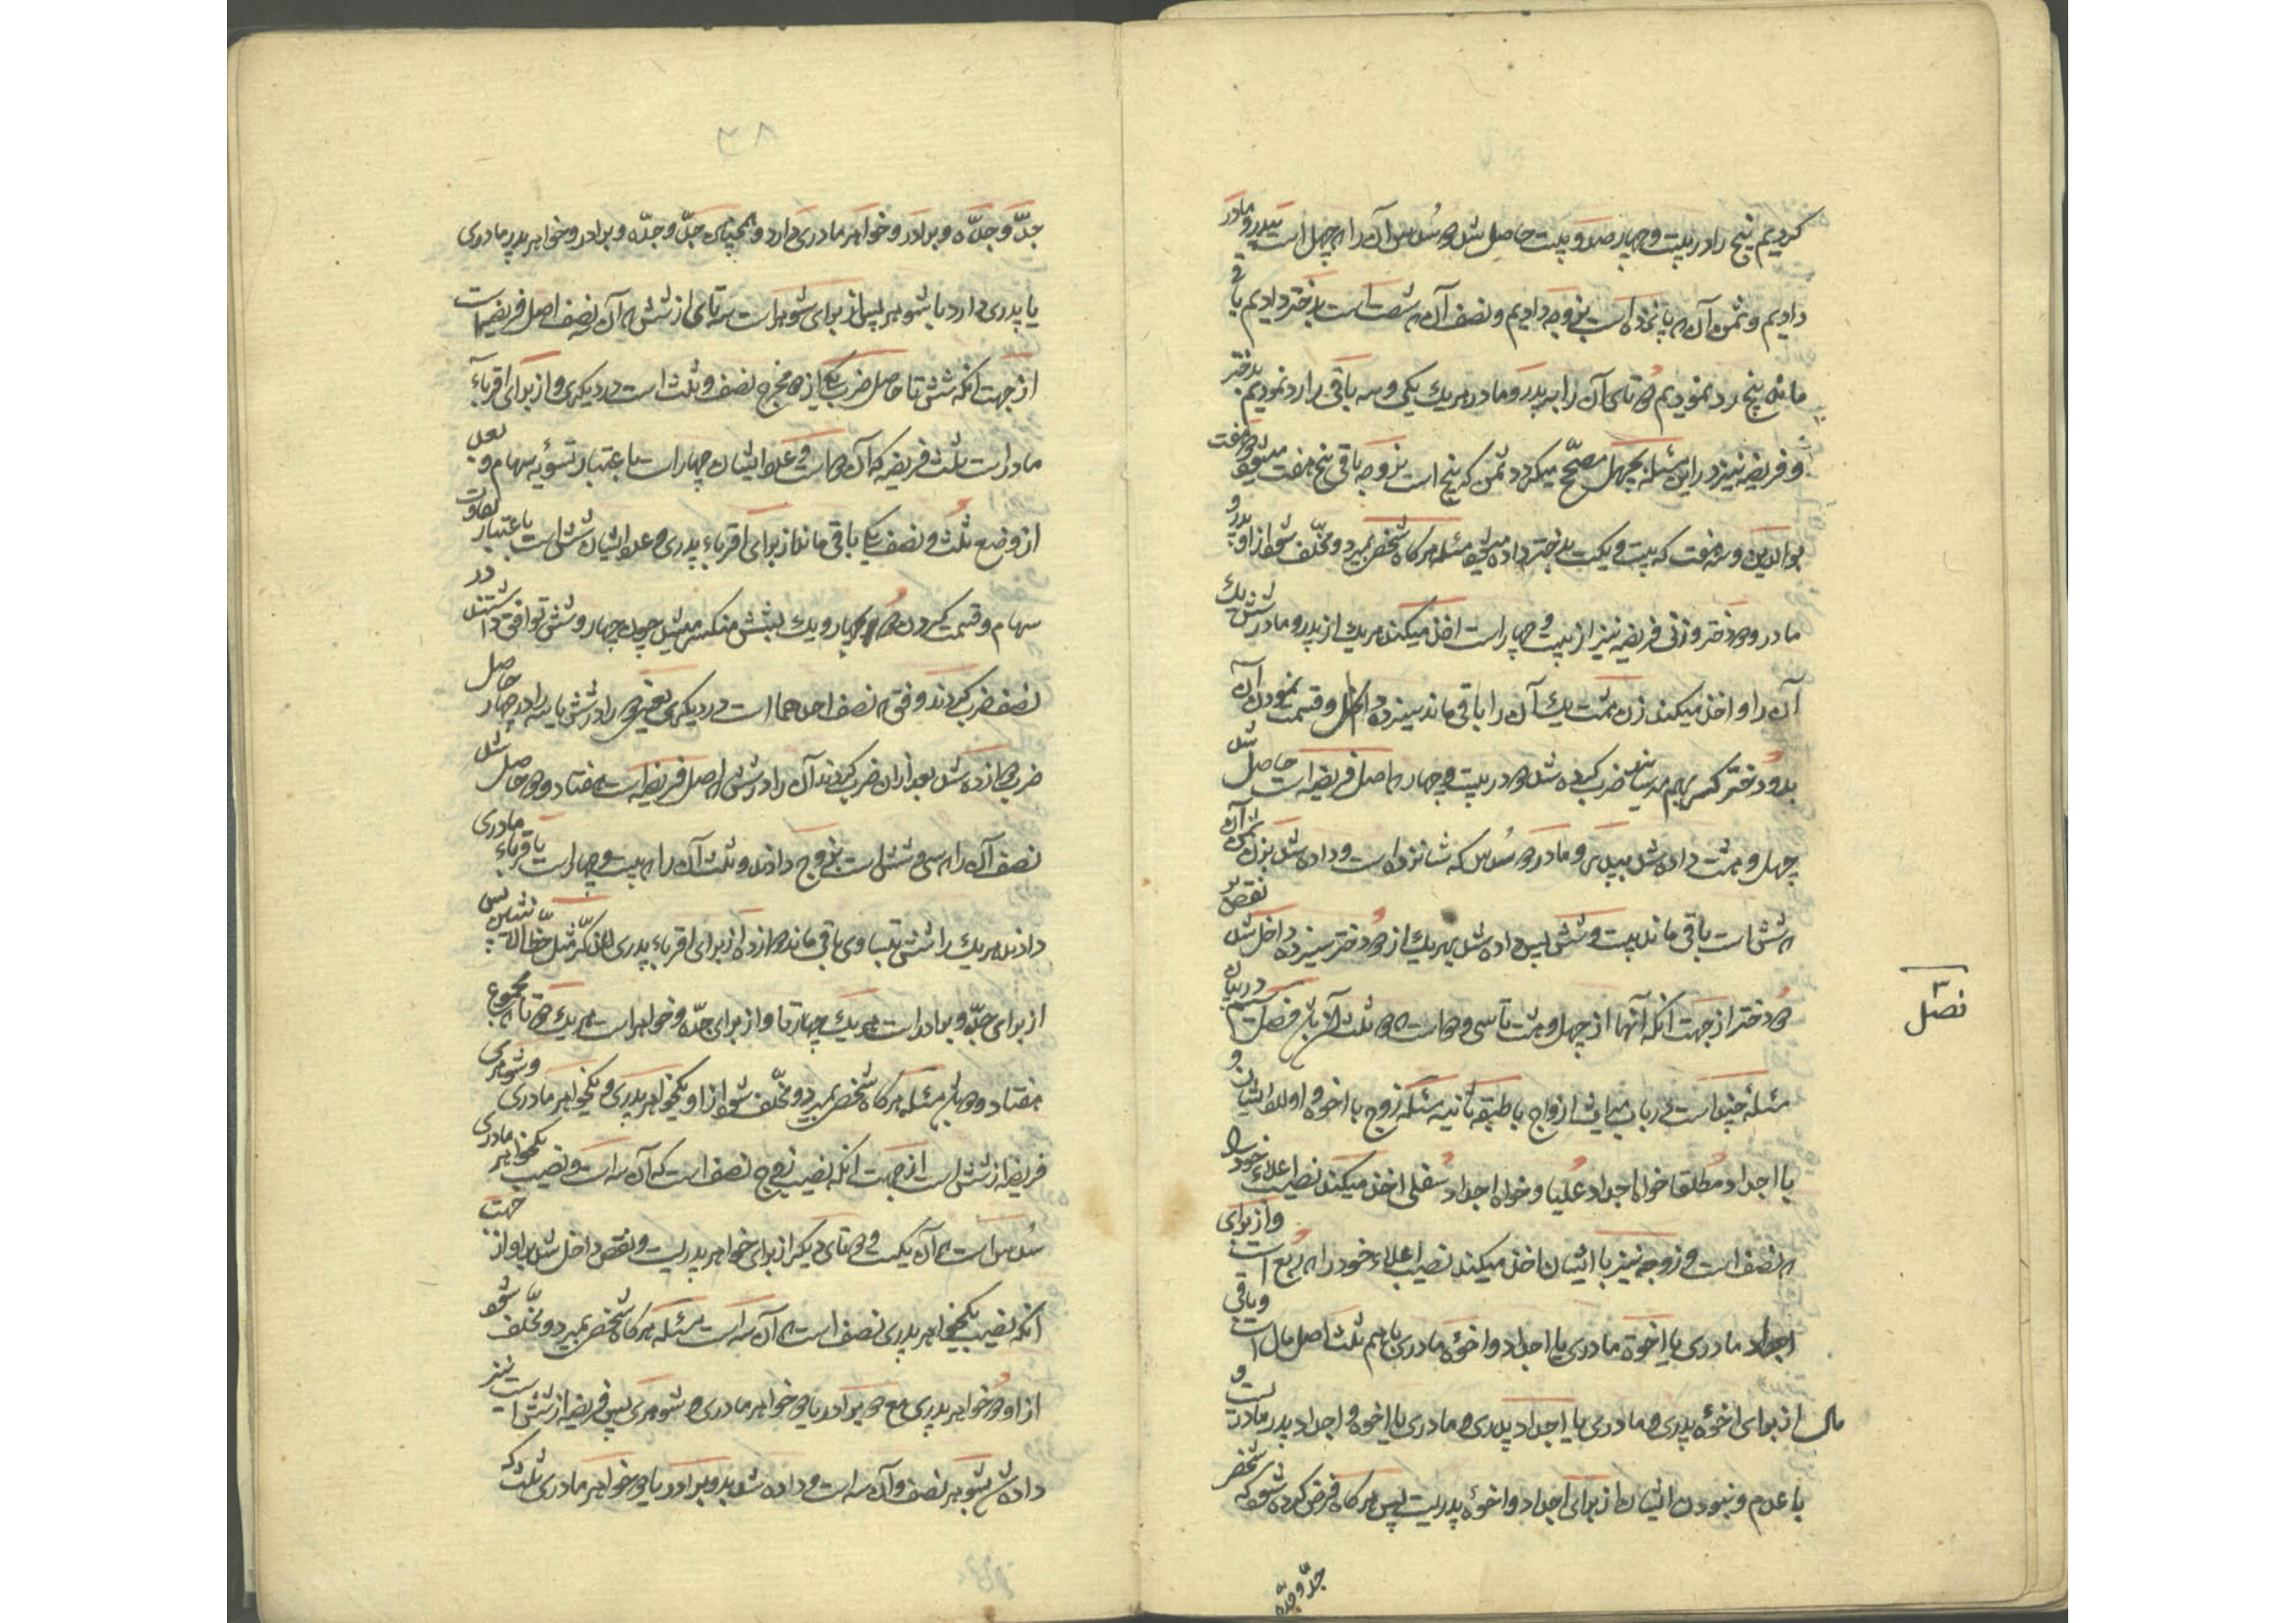 کردیم پنج را در بیست و چهار صد و بیست حاصل شد دو سُدس آن را که چهل است بپدر و مادر
دادیم و ثمن آن که پانزده است بزوجه دادیم و نصف آن که شصت است بدختر دادیم باقی
مانده پنج رد نمودیم دو تای آن را بر پدر و مادر هر یک یکی و سه باقی را رد نمودیم بدختر
و فریضه نیز در این مسئله بچهل مصحّح میکردد ثمن که پنج است بزوجه باقی پنج هفت میشود دو هفت
بوالدین و سه هفت که بیست و یکست بدختر داده میشود مسئله هر کاه شخصی بمیرد و مخلّف شود از او پدر و
مادر و دو دختر و زنی فریضه نیز از بیست و چهار است اخذ میکند هر یک از پدر و مادر شش یک
آن را و اخذ میکند زن هشت یک آن را باقی ماند سیزده داخل و قسمت نمودن آن
بدو دختر کسر بهم میرساند ضرب کرده شد دو در بیست و چهار که اصل فریضه است حاصل شد
چهل و هشت داده شد بپدر و مادر دو سُدس که شانزده است و داده شد بزن ثمن آن
که شش است باقی ماند بیست و شش پس داده شد بهر یک از دو دختر سیزده داخل شد نقص بر
دو دختر از جهت آنکه آنها از چهل و هشت تا سی و دو است که دو ثلث آن باشد فصل سیّم در بیان
مسئله چند است در باب میراث ازواج با طبقه ثانیه مسئله زوج با اخوه و اولاد ایشان و
با اجداد مطلقا خواه اجداد عُلیا و خواه اجداد سُفلی اخذ میکند نصیب اعلاء خود را
که نصف است و زوجه نیز با ایشان اخذ میکند نصیب اعلاء خود را که رُبع است و از برای
اجداد مادری یا اخوة مادری یا اجداد و اخوة مادری با هم ثلث اصل مال است و باقی
مال از برای اخوة پدری و مادری یا اجداد پدری و مادری یا اخوه و اجداد پدر مادریست و
با عدم و نبودن ایشان از برای اجداد و اخوة پدریست پس هر کاه فرض کرده شود که شخصی
جدّ و جدّه
فصل ۳
۳۸
جدّ و جدّه و برادر و خواهر مادری دارد و همچنین جدّ و جدّه و برادر و خواهر پدر مادری
یا پدری دارد با شوهر پس از برای شوهر است سه تای از شش که آن نصف اصل فریضه است
از جهت انکه شش تا حاصل ضرب یکی از دو مخرج نصف و ثلث است در دیکری و از برای اقرباء
مادر است ثلث فریضه که آن دو است و عدد ایشان چهار است باعتبار تسویه سهام و بعد
از وضع ثلث و نصف یکی باقی ماند از برای اقرباء پدری و عدد ایشان شش است باعتبار تفاوت
سهام و قسمت کردن دو بر چهار و یک بشش منکسر میشد چون چهار و شش توافق داشتند در
نصف ضرب کردند وفق که نصف احدهما است در دیکری یعنی دو را در شش یا سه را در چهار حاصل
ضرب دوازده شد بعد از ان ضرب کردند آن را در شش که اصل فریضه است هفتاد و دو حاصل شد
نصف آن را که سی و شش است بزوج دادند و ثلث آن را که بیست و چهار است باقرباء مادری
دادند هر یک را شش بتساوی باقی ماند دوازده از برای اقرباء پدری للذکر مثل حظّ الانثیین پس
از برای جدّ و برادر است هر یک چهار تا و از برای جدّه و خواهر است هر یک دو تا که مجموع
هفتاد و دو باشد مسئله هر کاه شخصی بمیرد و مخلّف شود از او یکخواهر پدری و یکخواهر مادری و شوهری
فریضه از شش است از جهت انکه نصیب زوج نصف است که آن سه است و نصیب یکخواهر مادری
سُدس است که آن یکست و دو تای دیکر از برای خواهر پدریست و نقص داخل شد بر او از جهت
انکه نصیب یکخواهر پدری نصف است که آن سه است مسئله هر کاه شخصی بمیرد و مخلّف شود
از او دو خواهر پدری مع دو برادر یا دو خواهر مادری و شوهری پس فریضه از شش است نیز
داده شد بشوهر نصف و آن سه است و داده شد بدو برادر یا دو خواهر مادری ثلث که